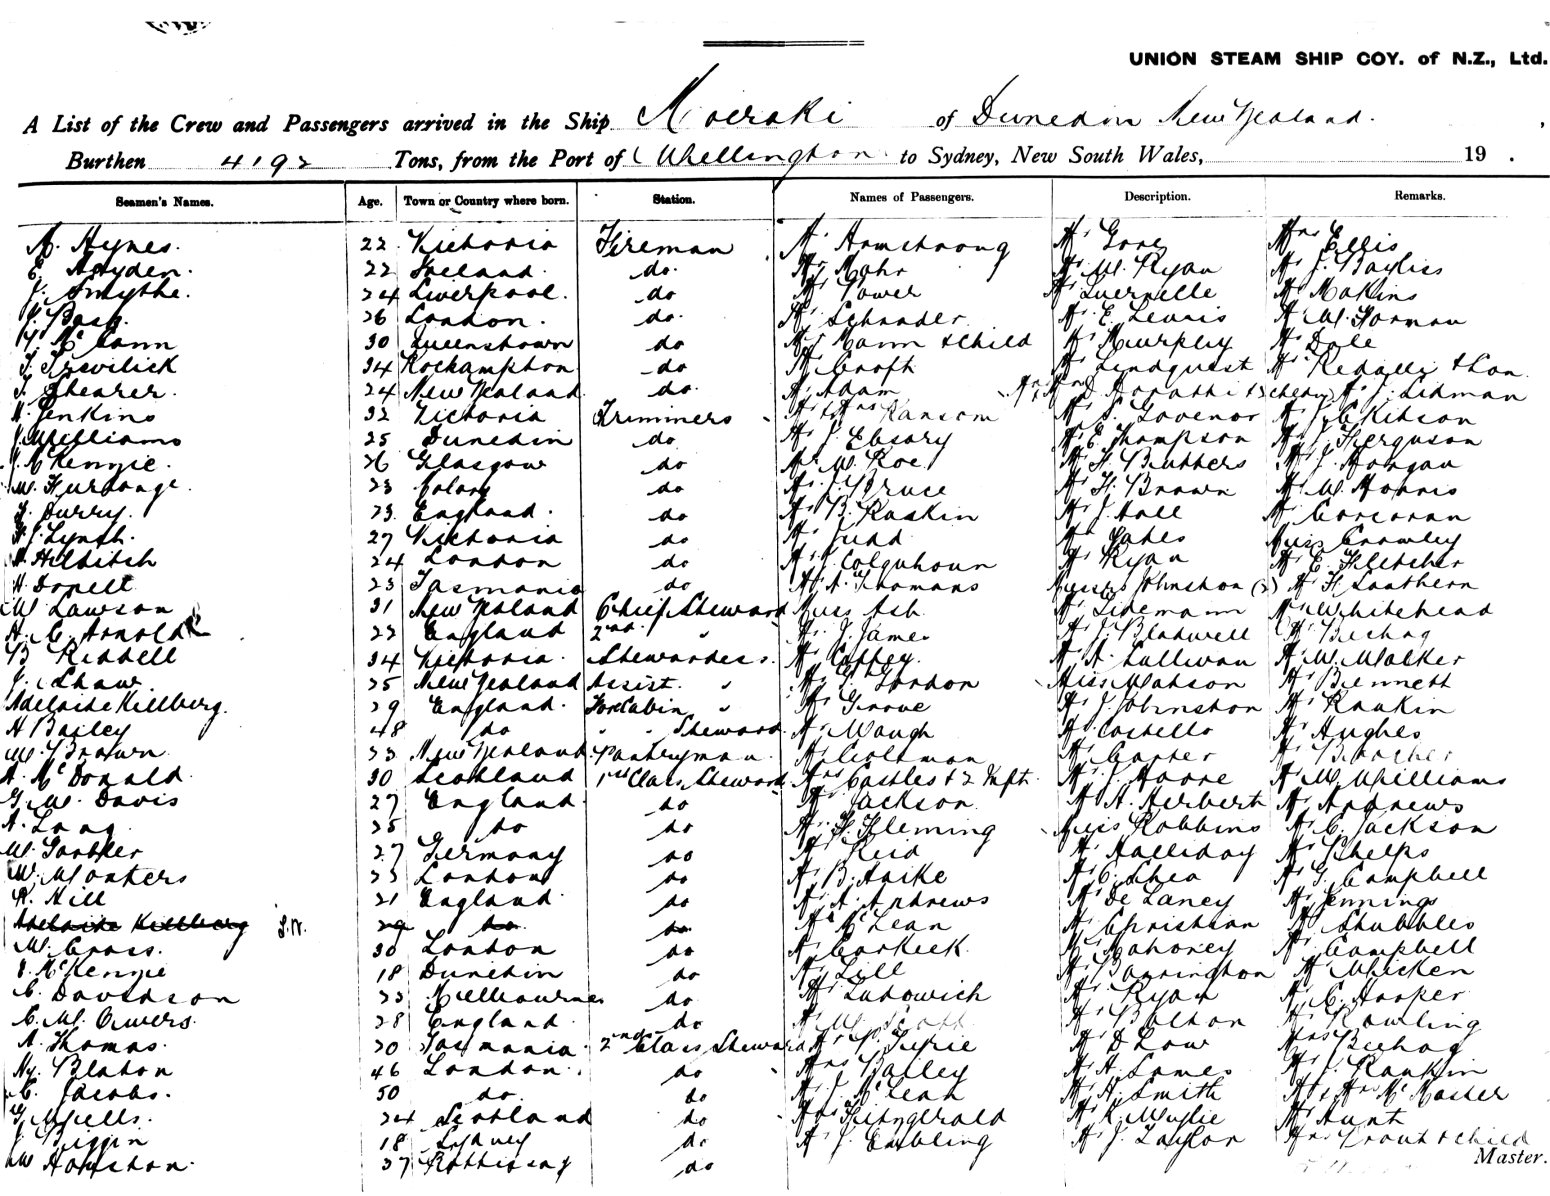 UNION STEAM SHIP COY. of N.Z., Ltd.
A List of the Crew and Passengers arrived in the Ship Moeraki of Dunedin New Zealand.
Burthen 4192 Tons, from the Port of Wellington to Sydney, New South Wales, 19 .
Seamen's Names. Age. Town or Country where born. Station. Names of Passengers. Description. Remarks.
A. Hynes. 22 Victoria Fireman Mr Armstrong Mr Gore Mrs Ellis
E. Hayden. 22 Ireland. do. Mr Mahr Mr W. Ryan Mr J. Bayliss
J. Smythe. 24 Liverpool. do Mr Power Mr Luernelle Mr Makins
26 London. do. Mr Schrader Mr E. Lewis Mr W. Gorman
Mc Cann 30 Queenstown do Mr Mann & child Mr Murphy Mr Dale
T. Trevilick 34 Rockhampton do Mr Croft Mr Lindquist Mr & Son
T. Shearer. 24 New Zealand do. Mr Adam Mr J. Lidman
H. Jenkins 32 Victoria Trimmers Mr & Mrs Ransom Mr Govenor Mr J. C. Kitson
J. Williams 25 Dunedin do Mr J. Ebsary Mr E. Thompson Mr J. Ferguson
McKenzie. 26 Glasgow do Mr W. Roe Mr H. Butters Mr J. Morgan
W. 23 do Mr J. Bruce Mr H. Brown Mr W. Morris
T. Durry. 23. England. do Mr B. Raskin Mr J. Hall Mr Corcoran
J. Lynch. 27 Victoria do Mr Judd Mr Yates Miss Crowley
H. Hilditch 24 London do Mr Colquhoun Mr Ryan Mr E. Fletcher
H. 23 Tasmania do Mr A. Thomans Misses Johnston (2) Mr H. Santhern
W. Lawson 31 New Zealand Chief Steward Miss Ash Mr Lidemann Mr Whitehead
H. C. Arnold 22 England 2nd " Mr J. James Mr J. Bladwell Mr
B. Riddell 34 Victoria. Stewardess. Mr Coffey. Mr A. Sullivan Mr W. Walker
J. Shaw 25 New Zealand Assist. " Mr Gordon Miss Watson Mr Bennett
Adelaide Killberg. 29 England. Fore Cabin " Mr Grove Mr J. Johnston Mr Rankin
H Bailey 48 do " Steward Mr Waugh Mr Costello Mr Hughes
W. Brown 23 New Zealand Pantryman Mr Coltman Mr Carter Mr
A. McDonald 30 Scotland 1st Class Steward Mrs Castles & 2 Inft. Mr J. Moore Mr W. Williams
G. W. Davis 27 England do Mr Jackson Mr A. Herbert Mr Andrews
A. Long 25 do do Mr H. Fleming Miss Robbins Mr C. Jackson
W. 27 Germany do Mr Reid Mr Halliday Mr Phelps
W. 23 London do Mr B. Mr C. Shea Mr G. Campbell
R. Hill 21 England. do Mr A. Andrews Mr De Laney Mr Jennings
Adelaide Killberg 29 do do Mr McLean Mr Christian Mr Stubbles
W. Cross. 30 London do Mr Carkeek Mr Mahoney Mr Campbell
McKenzie 18 Dunedin do Mr Lill Mr Barrington Mr Whicken
C. Davidson 23 Melbourne do Mr Ludowich Mr Ryan Mr C. Harper
C. W. Owers. 28 England. do Mr W. Scott Mr Bolton Mr Rowling
A. Thomas. 20 Tasmania. 2nd Class Steward Mr Mr D Low Mrs
Hy. Blaton 46 London. do Mrs Bailey Mr A. James Mr J. Rankin
C. Jacobs. 50 do. do Mr J. McLean Mr H. Smith Mr & Mrs McMaster
24 Scotland do Mrs Fitzgerald Mr R. Wylie Mr Hunt
J. Biggin 18 Sydney do Mr J. Embling Mr J. Taylor Mrs Trout & child
W Houston. 37 do
Master.